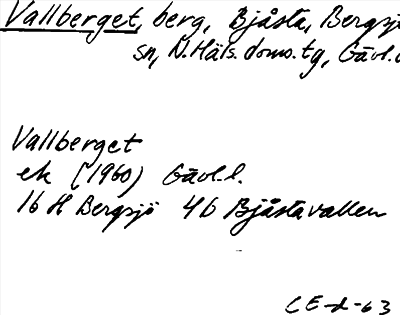 Vallberget, berg, Bjåsta, Bergsjö
sn, N. Häls. doms. tg, Gävl.l.
Vallberget
ek (1960) Gävl.l.
16 H Bergsjö 4 b Bjåstavallen
CE-l-63